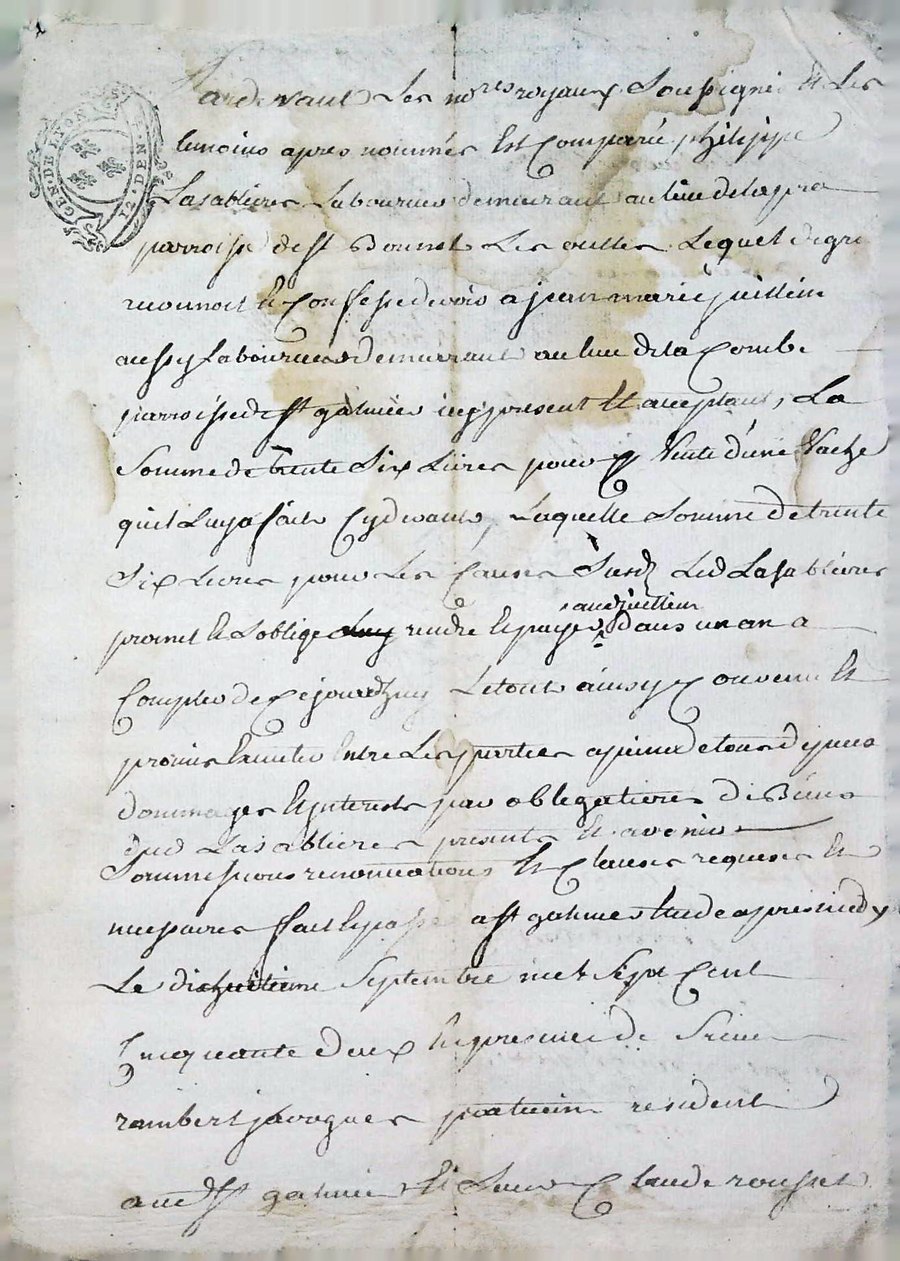 GEN. DE LYON 12. DEN.
Pardevant Les no.res royaux Soussignés Et Les
temoins apres nommés Est Comparu philippe
Lasabliere Laboureur demeurant au lieu de
parroisse de st Bonnet Les oulles Lequel de gré
reconnoit Et Confesse devoir a jean marie juillein
aussy Laboureur demeurant au lieu de la Combe
parroisse de st galmier icy present Et acceptant, La
Somme de trente Six Livres pour Vente d'une Vache
quil Luy a fait Cydevant, Laquelle Somme de trente
Six Livres pour Les Causes Susd Led Lasabliere
promet Et Soblige rendre Et payer aud juillein Dans un an a
Compter de Cejourdhuy Letout ainsy Convenu Et
promis Entre Les parties a peine de tous depens
dommages Et interests par obligations de Biens
dud Lasabliere presents Et avenir
Soumissions renonciations Et Clauses requises Et
necessaires ffait Et passé a st galmier Etude apres midy
Le dixhuitieme Septembre mil Sept Cent
Cinquante deux En presence de Sieur
rambert javogues praticien resident
aud st galmier Et Sieur Claude rousset